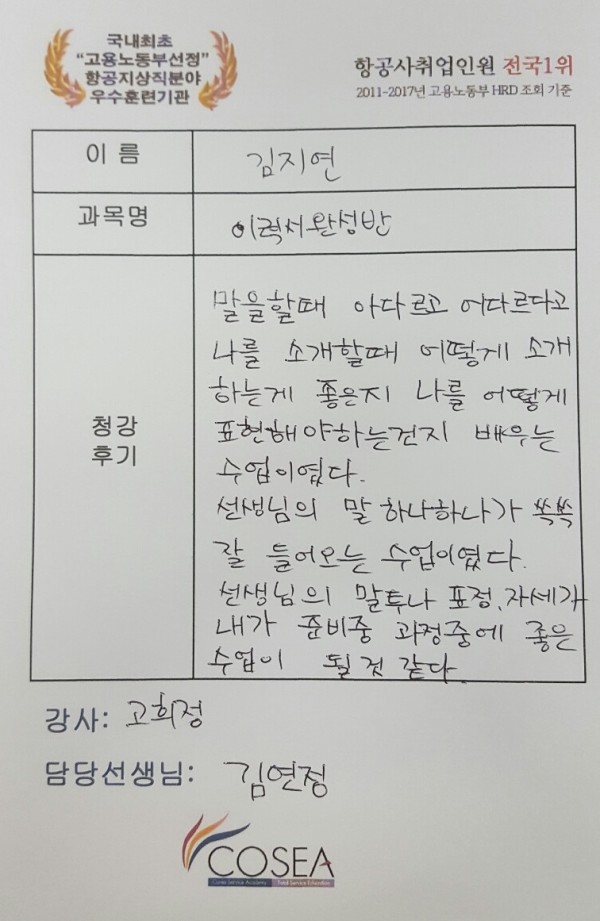 국내최초
"고용노동부선정"
항공지상직분야
우수훈련기관
항공사취업인원 전국1위
2011-2017년 고용노동부 HRD 조회 기준
이 름
김지연
과목명
이력서완성반
청강
후기
말을할때 아다르고 어다르다고
나를 소개할때 어떻게 소개
하는게 좋은지 나를 어떻게
표현해야하는건지 배우는
수업이였다.
선생님의 말 하나하나가 쏙쏙
잘 들어오는 수업이였다.
선생님의 말투나 표정, 자세가
내가 준비중 과정중에 좋은
수업이 될것 같다.
강사: 고희정
담당선생님: 김연정
COSEA
Cosea Service Academy Total Service Education